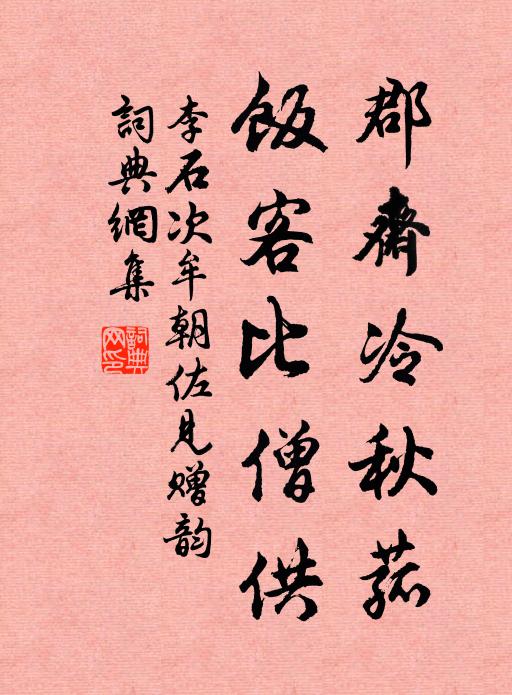 郡齋冷秋菰
飯客比僧供
李石次牟朝佐見贈韵
詞典網集
詞典
网印